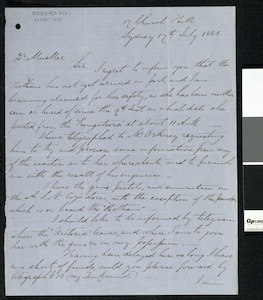 17 Church Hill
Sydney 17th July 1861.
Dr Mueller
Sir I regret to inform you that the
"Hotham" has not yet arrived in port, and I am
becoming alarmed for her safety, as she has neither been
seen or heard of since the 9th Inst on which date she
parted from the "Fangataira" at about 11 A.M.
I have telegraphed to Mr requesting
him to try and procure some information from any
of the coasters as to her whereabouts and to furnish
me with the result of his enquiries.
I have the guns, pistols, and ammunition in
the A.S.N. Coys stores, with the exception of the powder
which is on board the "Hotham".
I should like to be informed by telegram
when the "Victoria" leaves, and where I am to join
her with the guns &c in my possession.
Having been delayed here so long I have
run short of funds, could you please forward by
telegraph £10
I am